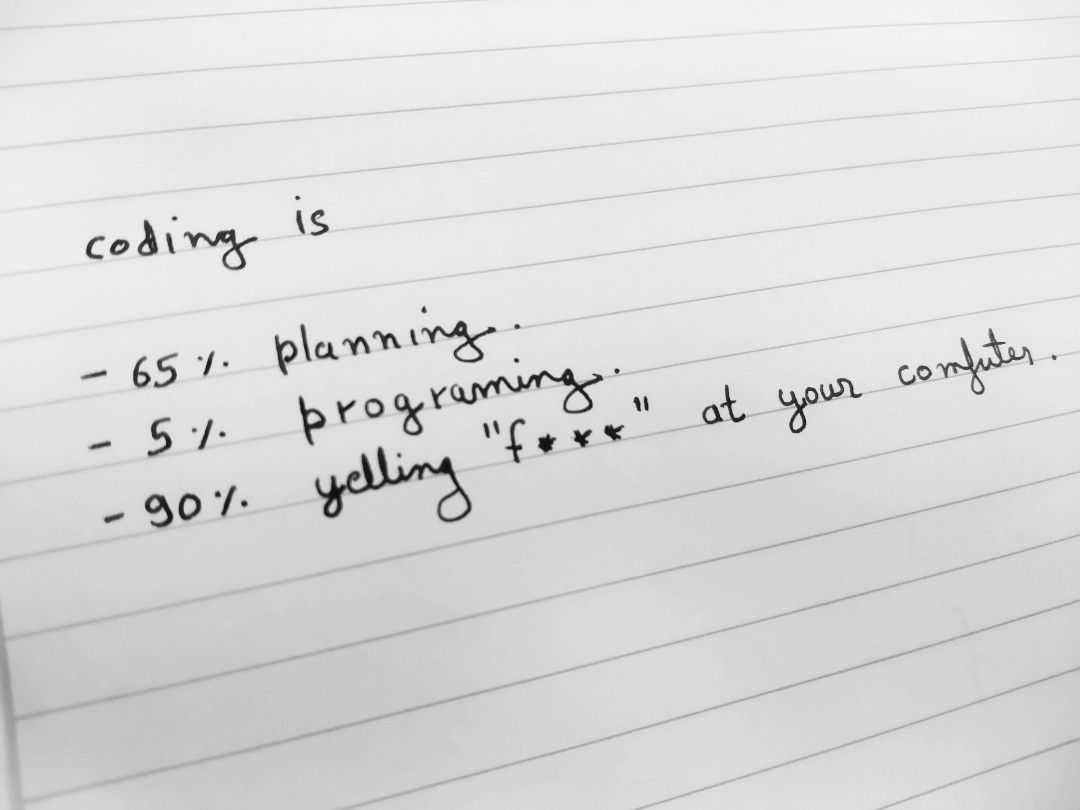 coding is
- 65%. planning.
- 5%. programing.
- 90%. yelling "f***" at your computer.